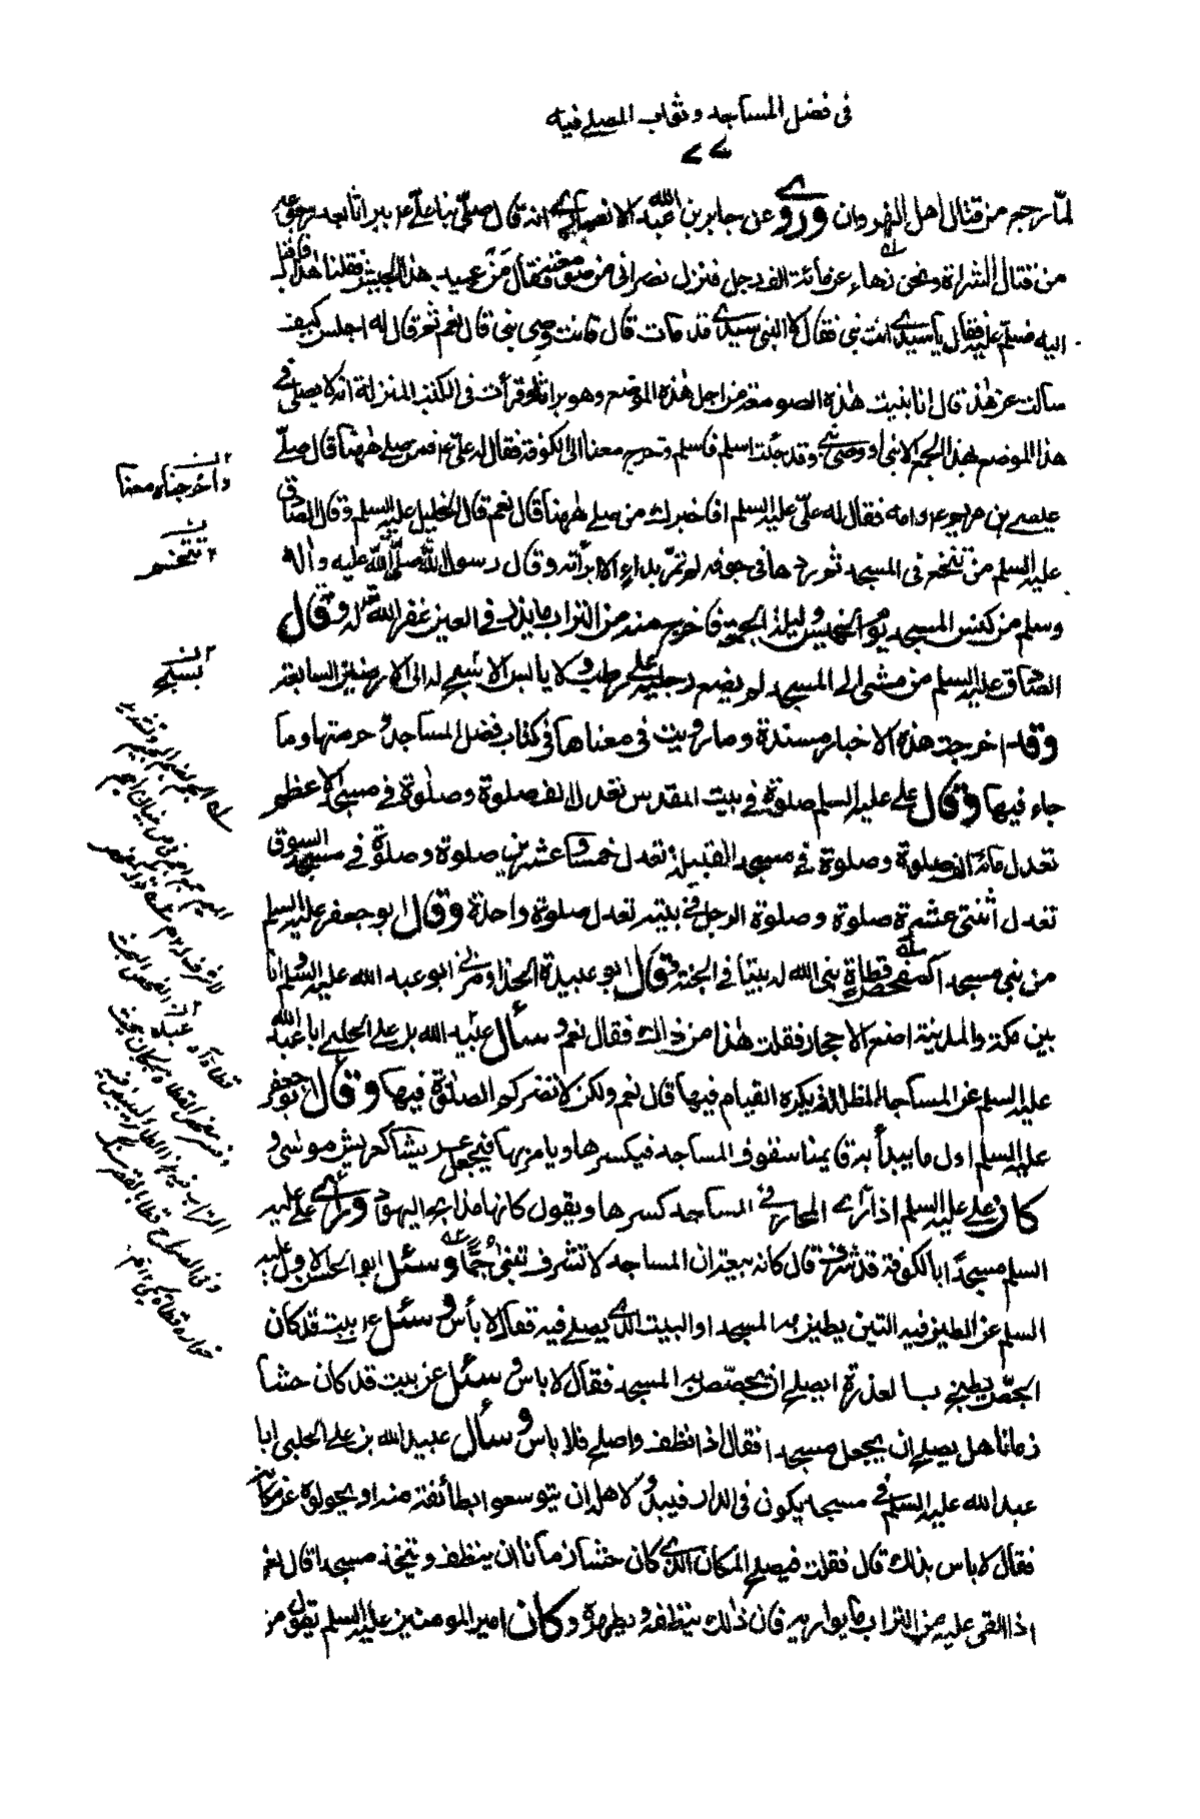 في فضل المساجد وثواب المصلى فيه
٧٧
لما رجع من قتال اهل النهروان وروي عن جابر بن عبد الله الانصاري انه قال صلى بنا علي ع ببراثا بعد رجوعه
من قتال الشراة ونحن زهاء عن مائة الف رجل فنزل نصراني من صومعته فقال من عميد هذا الجيش فقلنا هذا فاقبل
اليه فسلم عليه فقال يا سيدي انت نبي فقال لا النبي سيدي قد مات قال فانت وصي نبي قال نعم ثم قال له اجلس كيف
سالت عن هذا قال انا بنيت هذه الصومعة من اجل هذا الموضع وهو براثا وقرأت في الكتب المنزلة انه لا يصلي في
هذا الموضع بهذا الجمع الا نبي او وصي نبي وقد جئت اسلم فاسلم وخرج معنا الى الكوفة فقال له علي ع فمن صلى ههنا قال صلى
عيسى بن مريم ع وامه فقال له علي عليه السلم افاخبرك من صلى ههنا قال نعم قال الخليل عليه السلم وقال الصادق
عليه السلم من تنخع في المسجد ثم ردها في جوفه لم تمر بداء الا ابرأته وقال رسول الله صلى الله عليه واله
وسلم من كنس المسجد يوم الخميس وليلة الجمعة فاخرج منه من التراب ما يذر في العين غفر الله تعالى له وقال
الصادق عليه السلم من مشى الى المسجد لم يضع رجليه على رطب ولا يابس الا يسبح له الى الارضين السابعة
وقد اخرجت هذه الاخبار مسندة وما رويت في معناها في كتاب فضل المساجد وحرمتها وما
جاء فيها وقال علي عليه السلم صلوة في بيت المقدس تعدل الف صلوة وصلوة في مسجد الاعظم
تعدل مائة الف صلوة وصلوة في مسجد القبيلة تعدل خمسا وعشرين صلوة وصلوة في مسجد السوق
تعدل اثنتى عشرة صلوة وصلوة الرجل في بيته تعدل صلوة واحدة وقال ابو جعفر عليه السلم
من بنى مسجدا كمفحص قطاة بنى الله له بيتا في الجنة وقال ابو عبيدة الحذاء ومر بي ابو عبد الله عليه السلم وانا
بين مكة والمدينة اضع الاحجار فقلت هذا من ذالك فقال نعم وسأل عبيد الله بن علي الحلبي ابا عبد الله
عليه السلم عن المساجد المظللة يكره القيام فيها قال نعم ولكن لا تضركم الصلوة فيها وقال ابو جعفر
عليه السلم اول ما يبدأ به قائمنا سقوف المساجد فيكسرها ويامر بها فيجعل عريشا كعريش موسى و
كان علي عليه السلم اذا رأى المحاريب في المساجد كسرها ويقول كانها مذابح اليهود ورأى علي عليه
السلم مسجدا بالكوفة قد شرف قال كانه بيعة ان المساجد لا تشرف تبنى جما وسئل ابو الحسن الاول عليه
السلم عن الطين فيه التبن يطين به المسجد او البيت الذي يصلى فيه فقال لا بأس وسئل ع عن بيت قد كان
الجص يطبخ بالعذرة ايصلح ان يجصص به المسجد فقال لا باس وسئل عن بيت قد كان حشا
زمانا هل يصلح ان يجعل مسجدا فقال اذا نظف واصلح فلا باس وسأل عبيد الله بن علي الحلبي ابا
عبد الله عليه السلم في مسجد يكون في الدار فيبدو لاهله ان يتوسعوا بطائفة منه او يحولوه عن مكانه
فقال لا باس بذلك قال فقلت فيصلح المكان الذي كان حشا زمانا ان ينظف ويتخذ مسجدا قال نعم
اذا القى عليه من التراب ما يواريه فان ذلك ينظفه ويطهره وكان امير المؤمنين عليه السلم يقول من
واخرجناه معنا
تنخم
يسبح